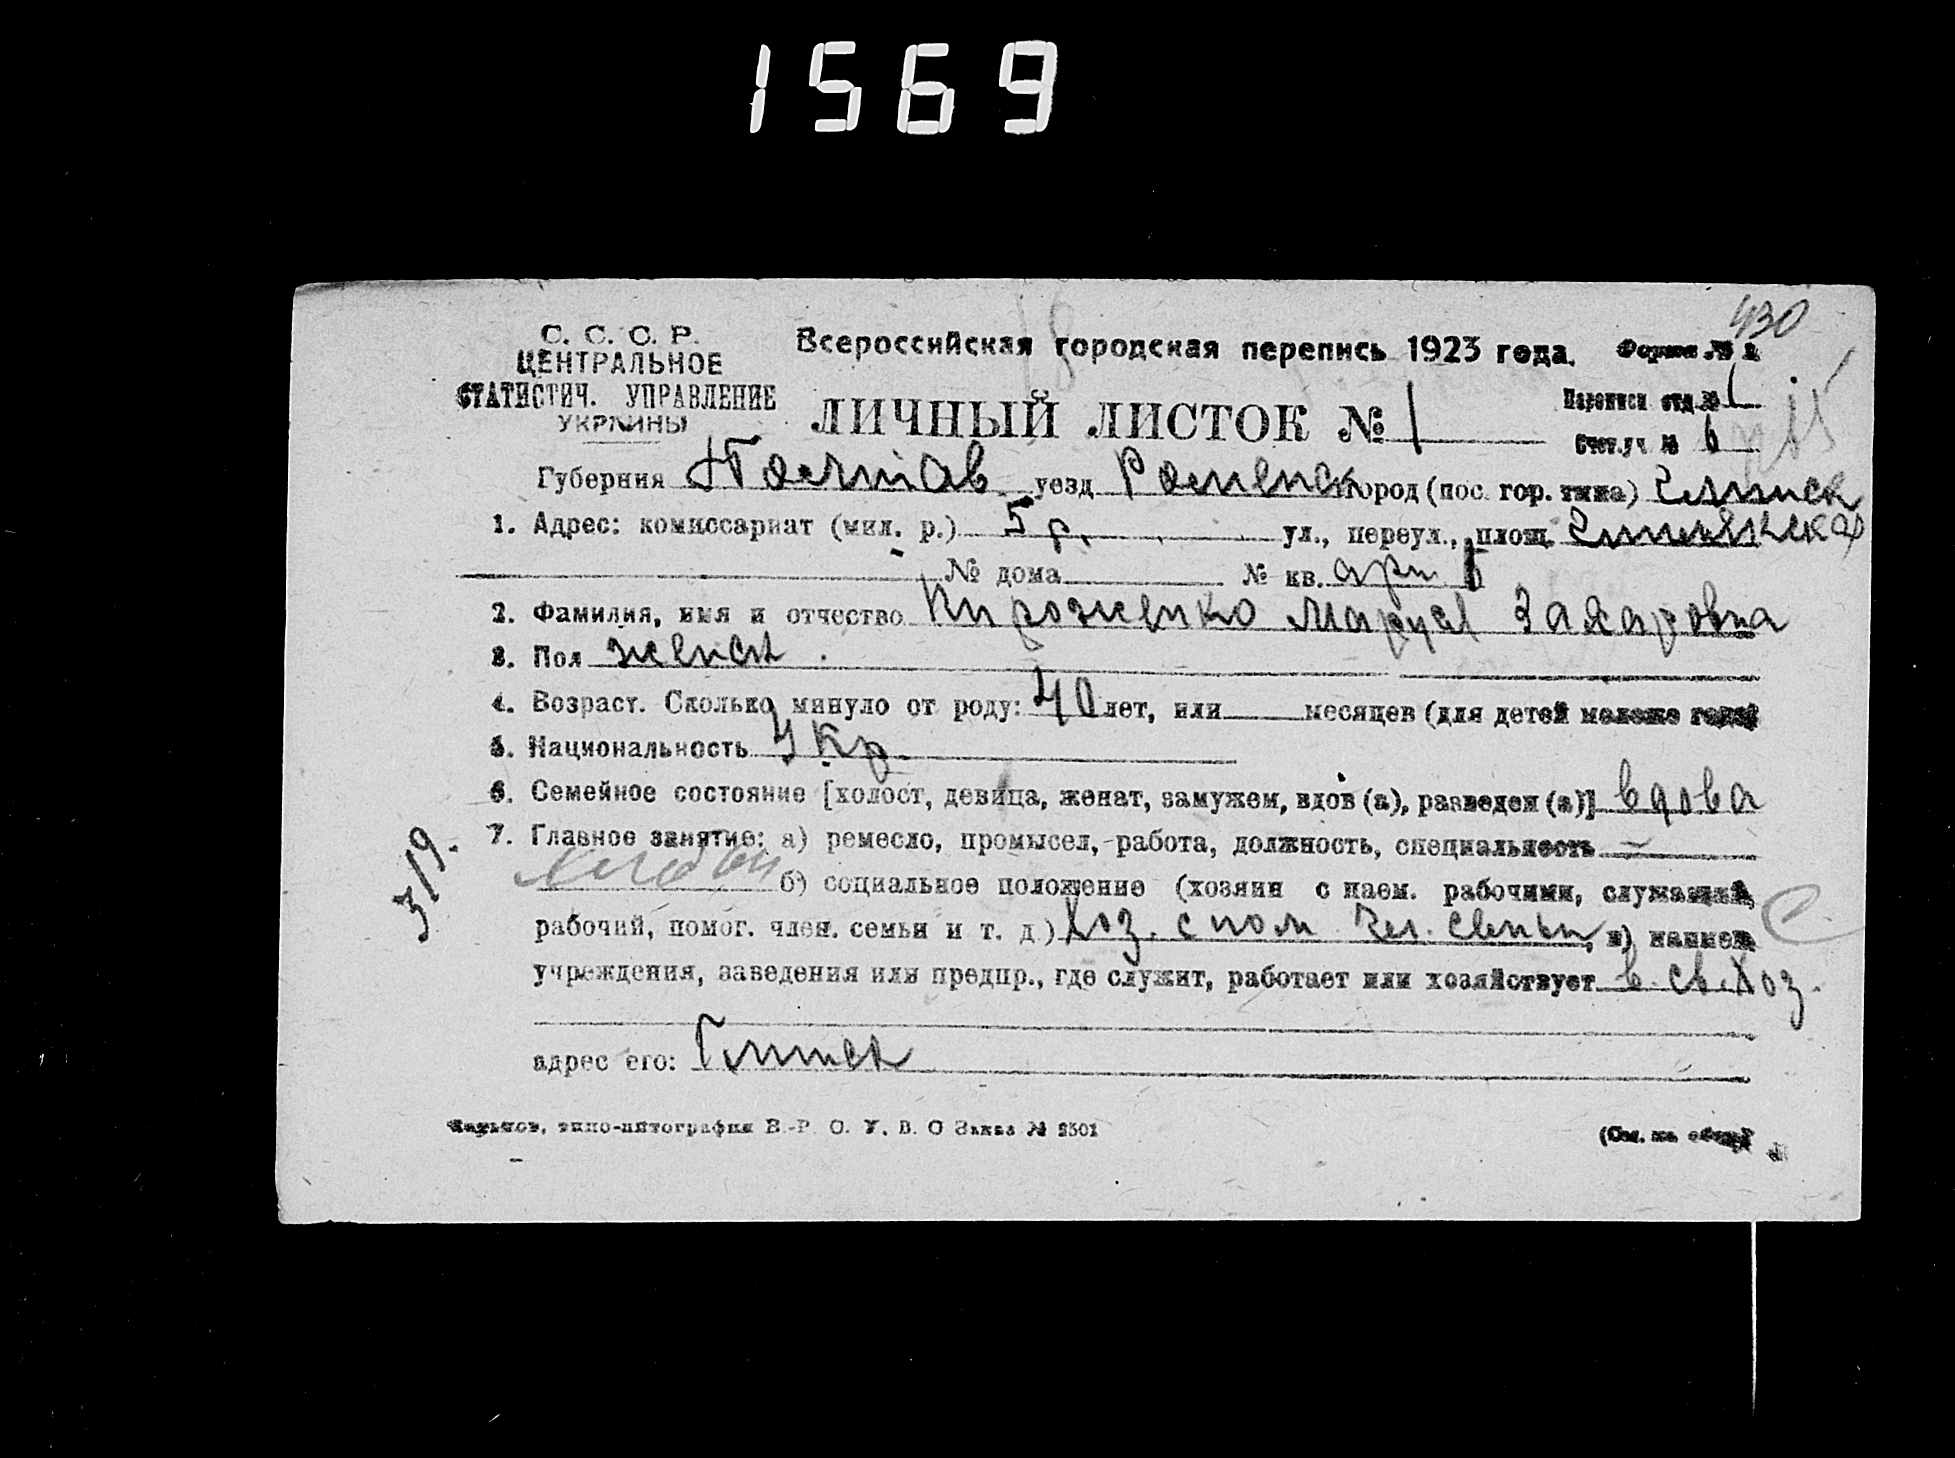 1569
430
С. С. С. Р.
ЦЕНТРАЛЬНОЕ
СТАТИСТИЧ. УПРАВЛЕНИЕ
УКРАИНЫ
Всероссийская городская перепись 1923 года. Форма № 2
ЛИЧНЫЙ ЛИСТОК № 1
Переписн отд. № 1
Счет. уч. № 6
Губерния Полтав уезд Роменск город (пос. гор. типа) Глинск
1. Адрес: комиссариат (мил. р.) 5 р. ул., переул., площ. Глинянская
№ дома № кв. 6
2. Фамилия, имя и отчество Пироженко Маруся Захаровна
3. Пол женск.
4. Возраст. Сколько минуло от роду: 40 лет, или месяцев (для детей моложе года)
5. Национальность Укр.
6. Семейное состояние [холост, девица, женат, замужем, вдов (а), разведен (а)] вдова
7. Главное занятие: а) ремесло, промысел, работа, должность, специальность —
3/19.
б) социальное положение (хозяин с наем. рабочими, служащий,
рабочий, помог. член. семьи и т. д.) Хоз. с пом. чл. семьи, в) наимен.
С
учреждения, заведения или предпр., где служит, работает или хозяйствует в св. хоз.
адрес его: Глинск
Харьков, типо-литография В.-Р. О. У. В. О Заказ № 2501
(См. на обор.)